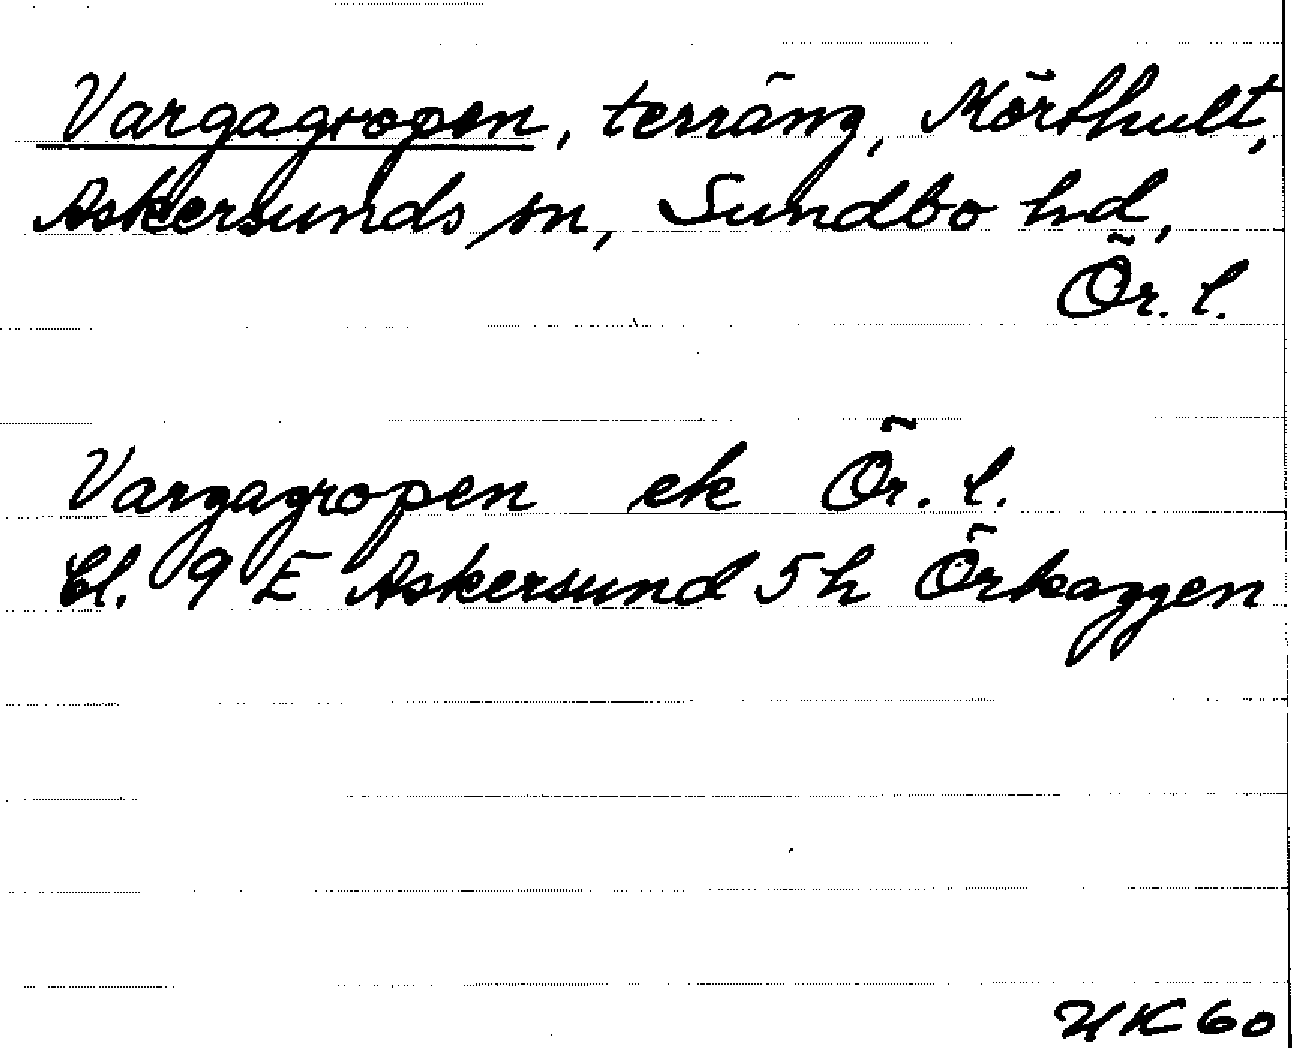 Vargagropen, terräng, Mörthult,
Askersunds sn, Sundbo hd,
Ör. l.
Vargagropen ek Ör. l.
bl. 9 E Askersund 5 h Örkaggen
HK 60